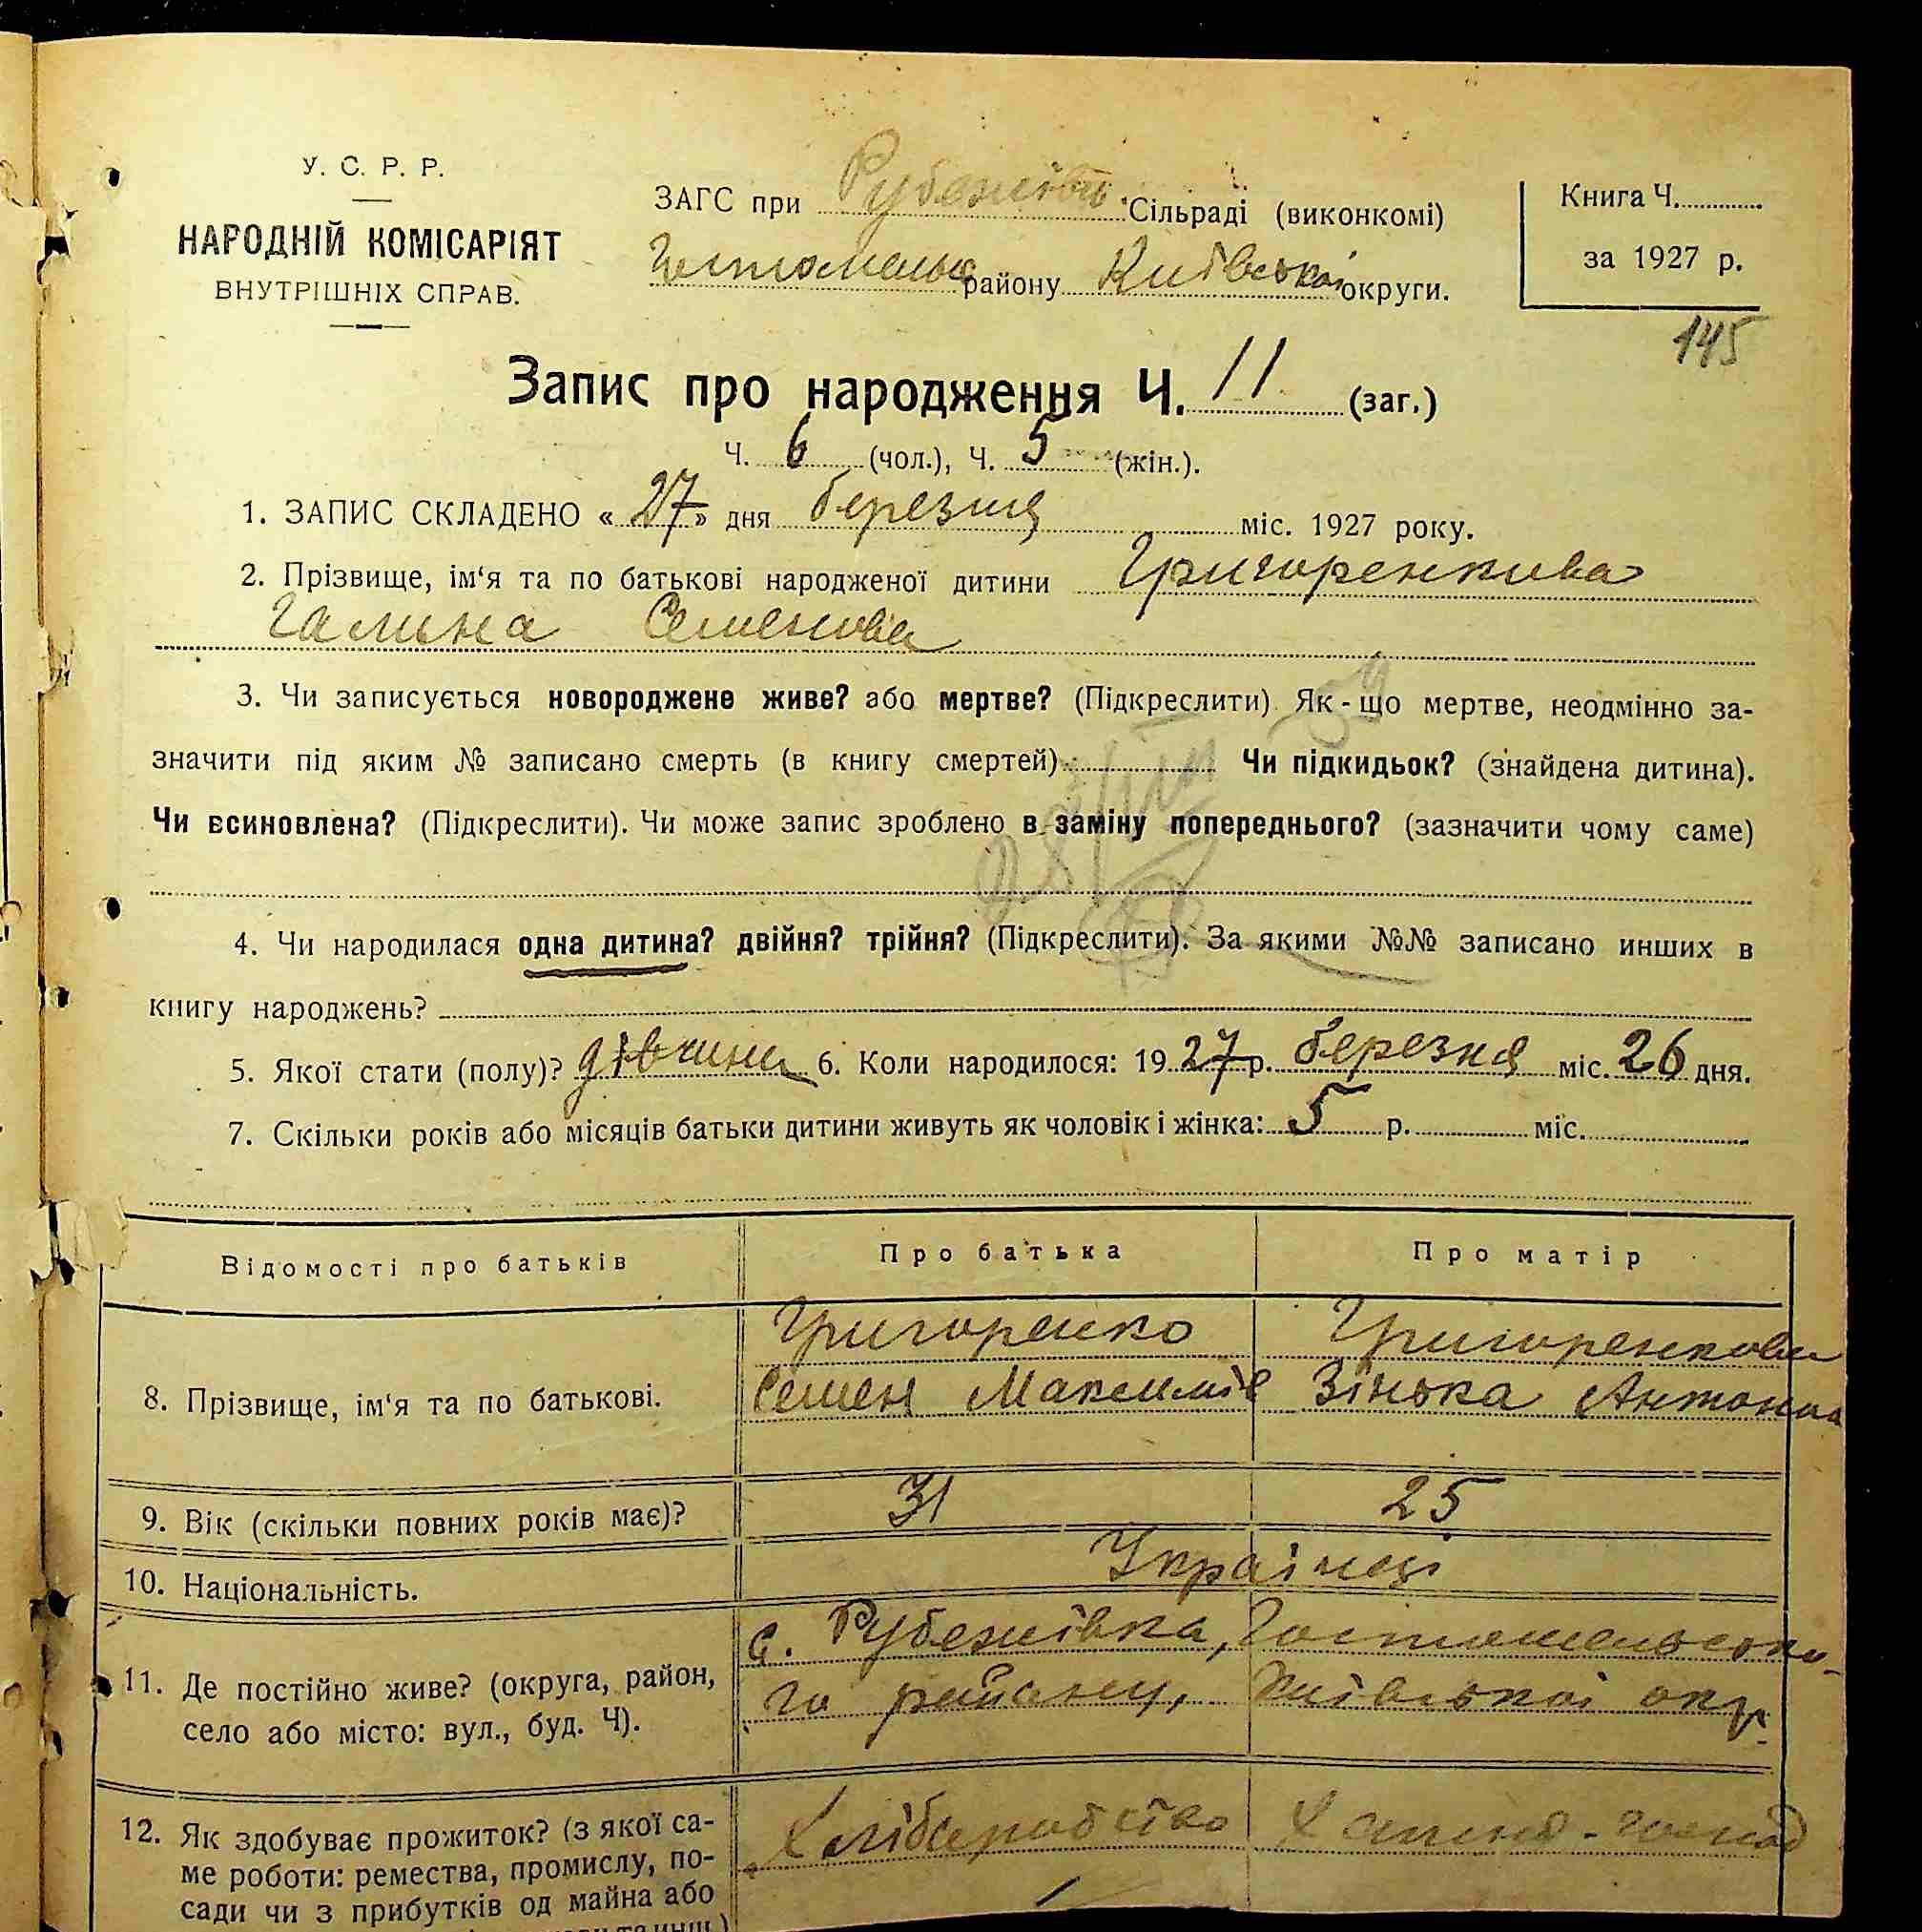 У. С. Р. Р.
НАРОДНІЙ КОМІСАРІЯТ
ВНУТРІШНІХ СПРАВ.
ЗАГС при Рубежівс. Сільраді (виконкомі)
Гостомельс району Київської округи.
Книга Ч.
за 1927 р.
145
Запис про народження Ч. 11 (заг.)
Ч. 6 (чол.), Ч. 5 (жін.).
1. ЗАПИС СКЛАДЕНО « 27 » дня березня міс. 1927 року.
2. Прізвище, ім‘я та по батькові народженої дитини Григоренкова
Галина Семенова
3. Чи записується новороджене живе? або мертве? (Підкреслити) Як-що мертве, неодмінно за-
значити під яким № записано смерть (в книгу смертей) Чи підкидьок? (знайдена дитина).
Чи всиновлена? (Підкреслити). Чи може запис зроблено в заміну попереднього? (зазначити чому саме)
4. Чи народилася одна дитина? двійня? трійня? (Підкреслити). За якими №№ записано инших в
книгу народжень?
5. Якої стати (полу)? дівчина 6. Коли народилося: 1927 р. березня міс. 26 дня.
7. Скільки років або місяців батьки дитини живуть як чоловік і жінка: 5 р. міс.
Відомості про батьків Про батька Про матір
Григоренко Григоренкова
8. Прізвище, ім‘я та по батькові. Семен Максимів Зінька Антонна
9. Вік (скільки повних років має)? 31 25
10. Національність. Українці
с. Рубежівка, Гостомельсько-
11. Де постійно живе? (округа, район, го району, Київської окр.
село або місто: вул., буд. Ч).
12. Як здобуває прожиток? (з якої са- Хліборобство Хатнє-господ
ме роботи: ремества, промислу, по-
сади чи з прибутків од майна або